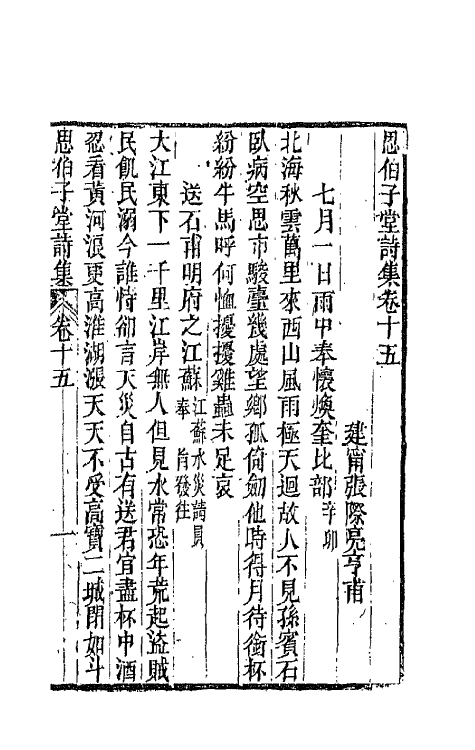 思伯子堂詩集卷十五
建甯張際亮亨甫
七月一日雨中奉懷煥奎比部辛卯
北海秋雲萬里來西山風雨極天迴故人不見孫賓石
臥病空思市駿臺幾處望鄉孤倚劒他時得月待銜杯
紛紛牛馬呼何恤擾擾雞蟲未足哀
送石甫明府之江蘇江蘇水災請員奉 旨發往
大江東下一千里江岸無人但見水常恐年荒起盜賊
民飢民溺今誰恃卻言天災自古有送君宜盡杯中酒
忍看黃河浪更高淮湖漲天天不受高寶二城閉如斗
思伯子堂詩集 卷十五 一